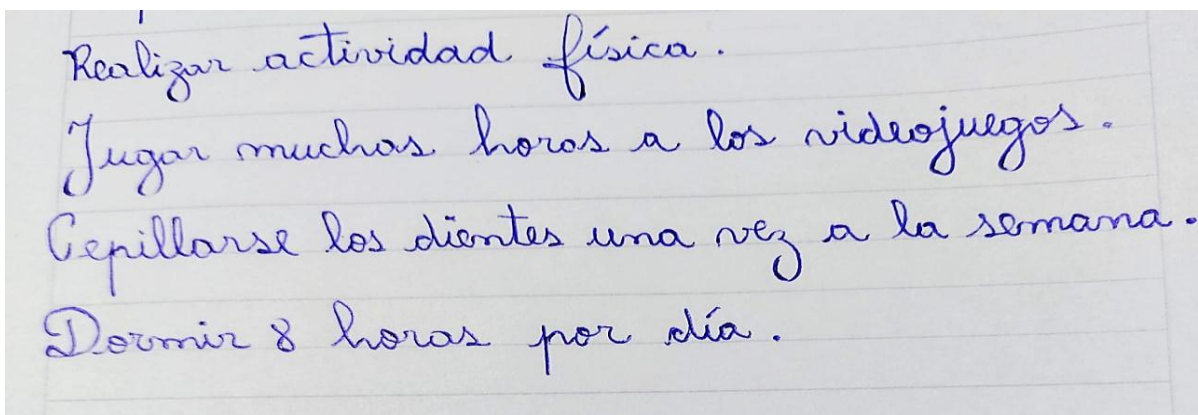 Realizar actividad física.
Jugar muchas horas a los videojuegos.
Cepillarse los dientes una vez a la semana.
Dormir 8 horas por día.